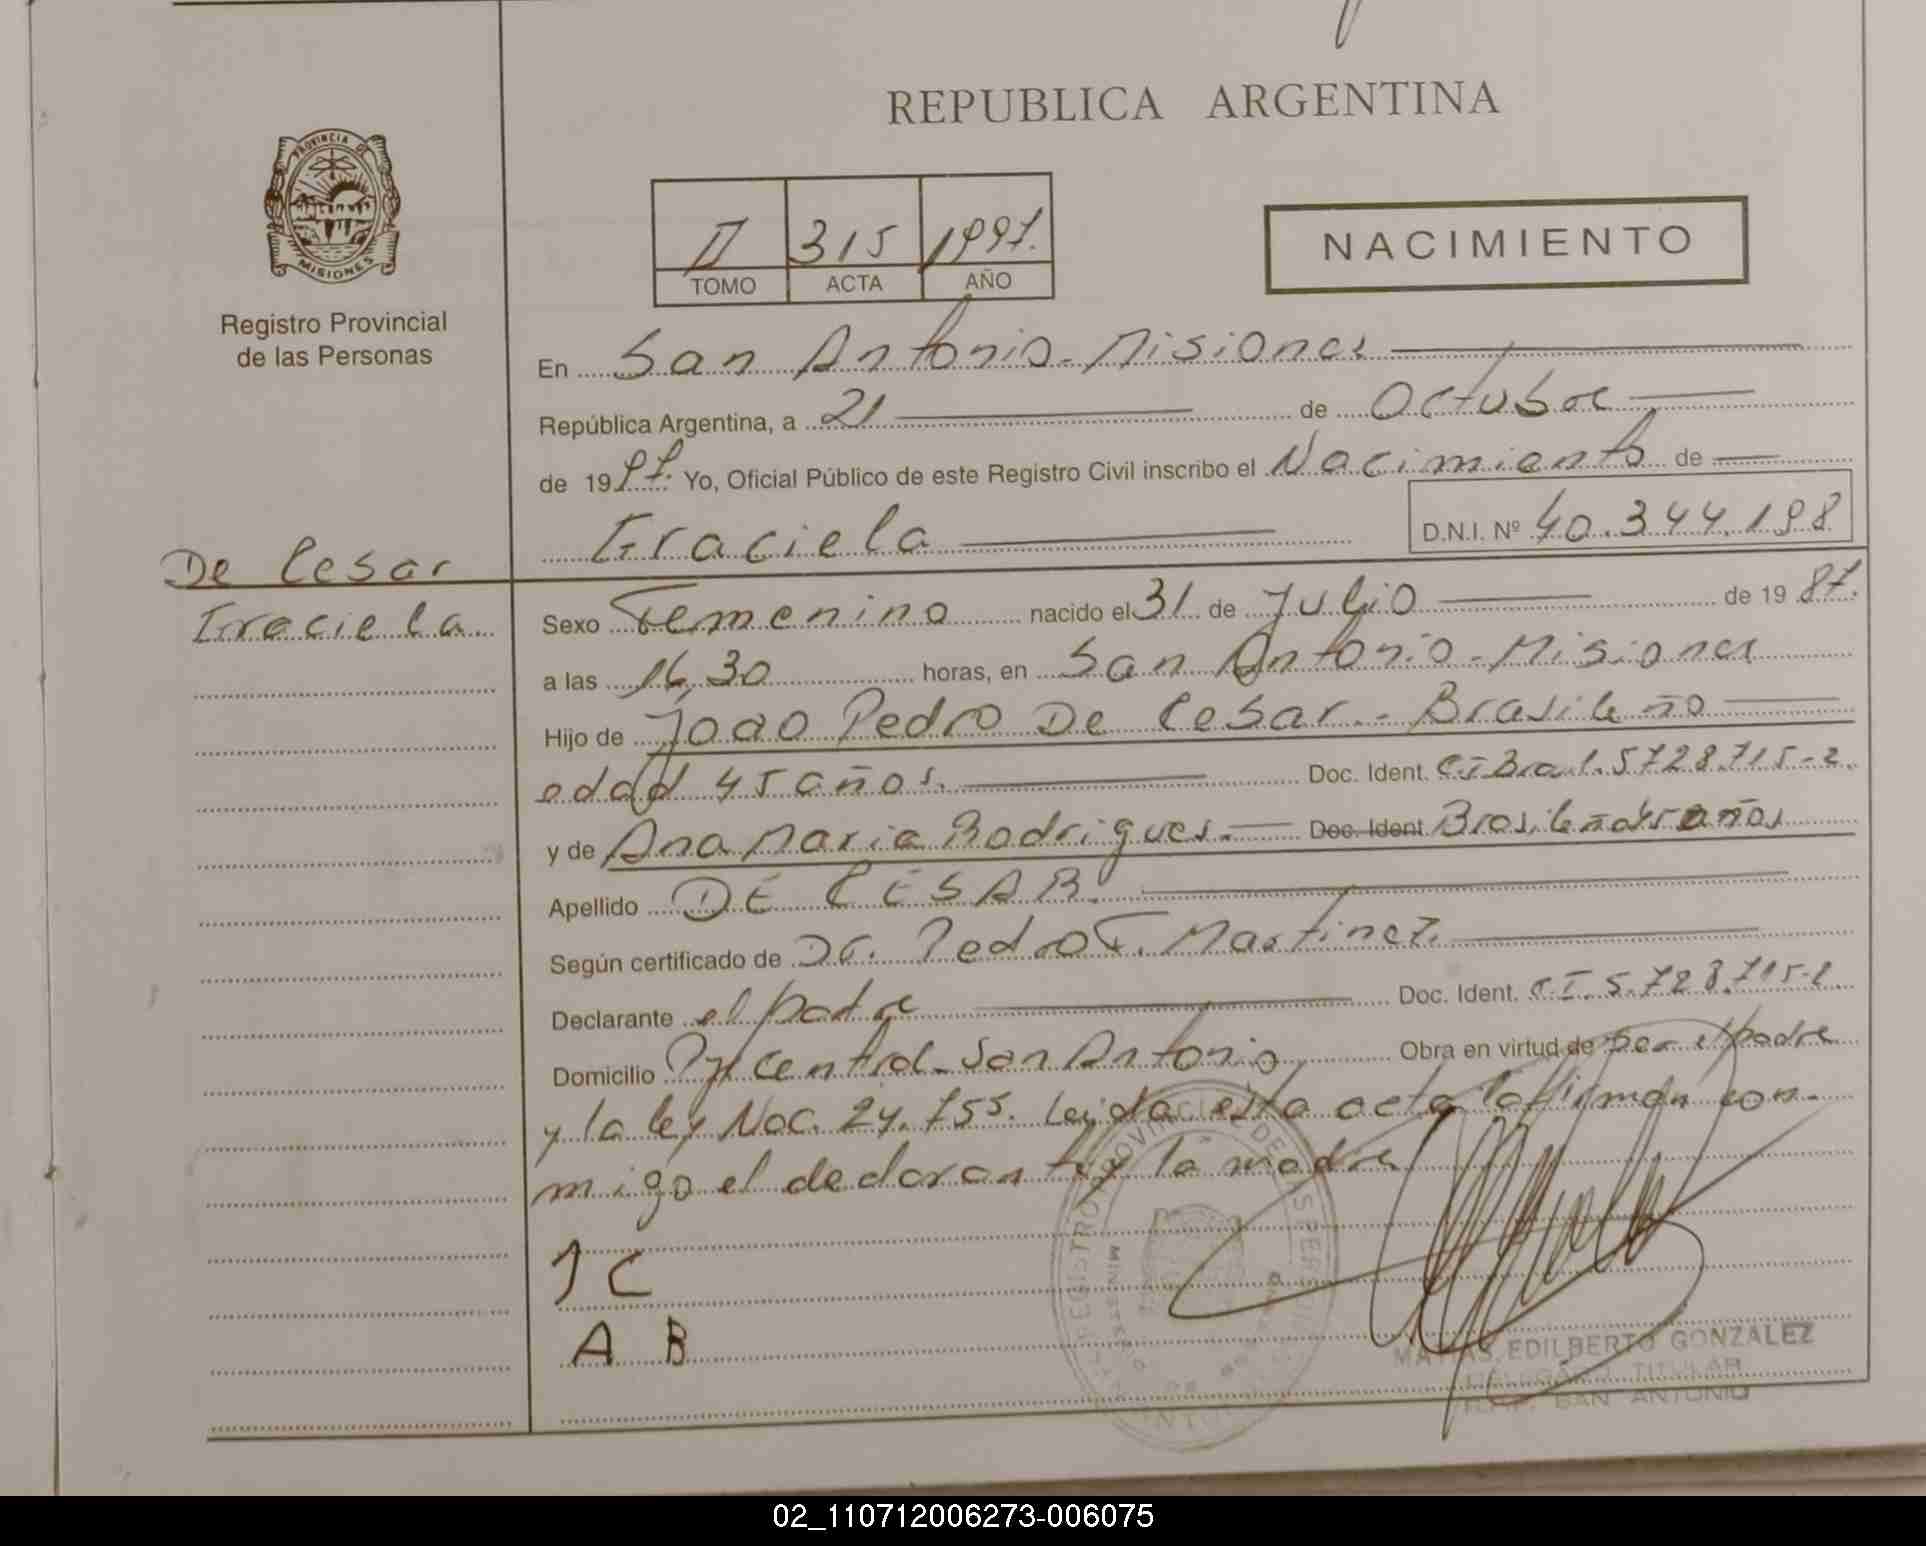 REPUBLICA ARGENTINA
PROVINCIA DE
MISIONES
Registro Provincial
de las Personas
II 315 1997.
TOMO ACTA AÑO
NACIMIENTO
En San Antonio - Misiones
República Argentina, a 21 de Octubre
de 1997. Yo, Oficial Público de este Registro Civil inscribo el Nacimiento de
Graciela D.N.I. Nº 40.344.198
De Cesar
Graciela
Sexo Femenino nacido el 31 de Julio de 1987.
a las 16,30 horas, en San Antonio - Misiones
Hijo de Joao Pedro De Cesar. - Brasileño
edad 45 años. Doc. Ident. C.I Bra 1.5728.715-2.
y de Ana Maria Rodrigues. Doc. Ident Brasileña años
Apellido DE CESAR.
Según certificado de Dr. Pedro F. Martinez.
Declarante el padre Doc. Ident. C.I. 5.728.715-2.
Domicilio Central - San Antonio Obra en virtud de por el padre
y la ley Nac. 24.755. Leida esta acta la firman con-
migo el declarante y la madre
J C
A B
REGISTRO PROVINCIAL DE LAS PERSONAS
MINISTERIO DE GOBIERNO
MATIAS EDILBERTO GONZALEZ
DELEGADO TITULAR
R.P.P. SAN ANTONIO
02_110712006273-006075